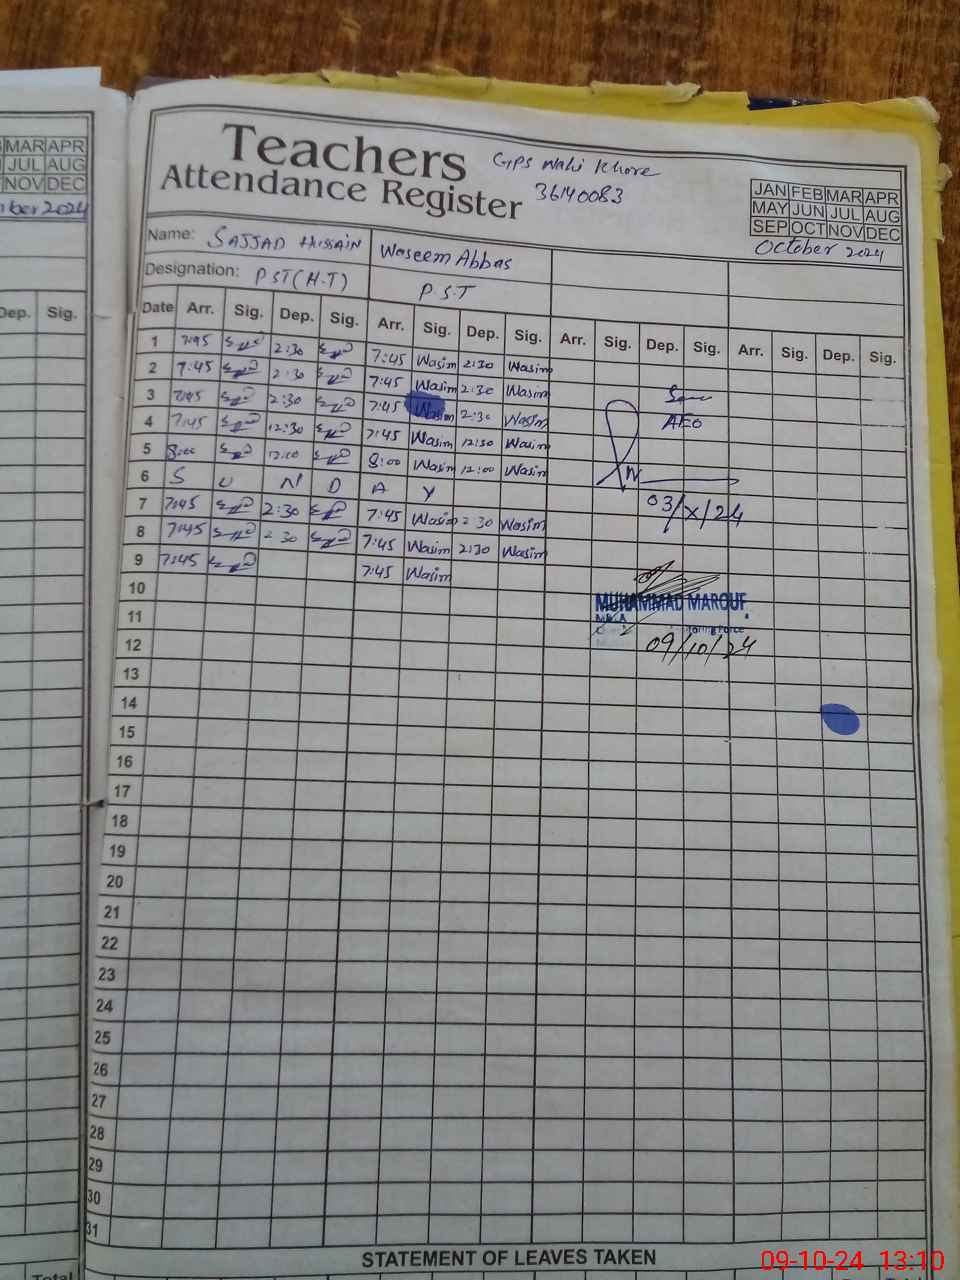 MAR APR
JUL AUG
NOV DEC
ber 2024
Dep. Sig.
Total
Teachers
Attendance Register
GPS Wahi Khore
36140083
JAN FEB MAR APR
MAY JUN JUL AUG
SEP OCT NOV DEC
October 2024
Name: SAJJAD HUSSAIN Waseem Abbas
Designation: PST (H.T) P.S.T
Date Arr. Sig. Dep. Sig. Arr. Sig. Dep. Sig. Arr. Sig. Dep. Sig. Arr. Sig. Dep. Sig.
1 7:45 2:30 7:45 Wasim 2:30 Wasim
2 7:45 2:30 7:45 Wasim 2:30 Wasim
3 7:45 2:30 7:45 Wasim 2:30 Wasim
AEO
4 7:45 12:30 7:45 Wasim 12:30 Wasim
5 8:00 12:00 8:00 Wasim 12:00 Wasim
6 S U N D A Y
03/X/24
7 7:45 2:30 7:45 Wasim 2 30 Wasim
8 7:45 2 30 7:45 Wasim 2:30 Wasim
9 7:45 7:45 Wasim
10
MUHAMMAD MAROUF
11
12
09/10/24
13
14
15
16
17
18
19
20
21
22
23
24
25
26
27
28
29
30
31
STATEMENT OF LEAVES TAKEN
09-10-24 13:10